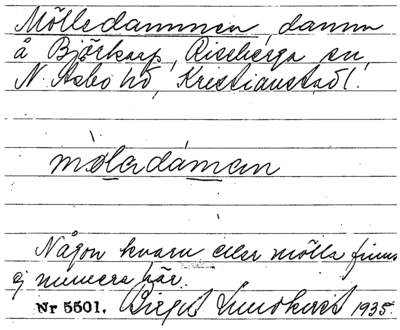 Mölledammen, damm
å Björkarp, Riseberga sn,
N. Åsbo hd, Kristianst. l.
möladámen
Någon kvarn eller mölla finns
ej numera här.
Nr 5501. Birger Lundkvist 1935.